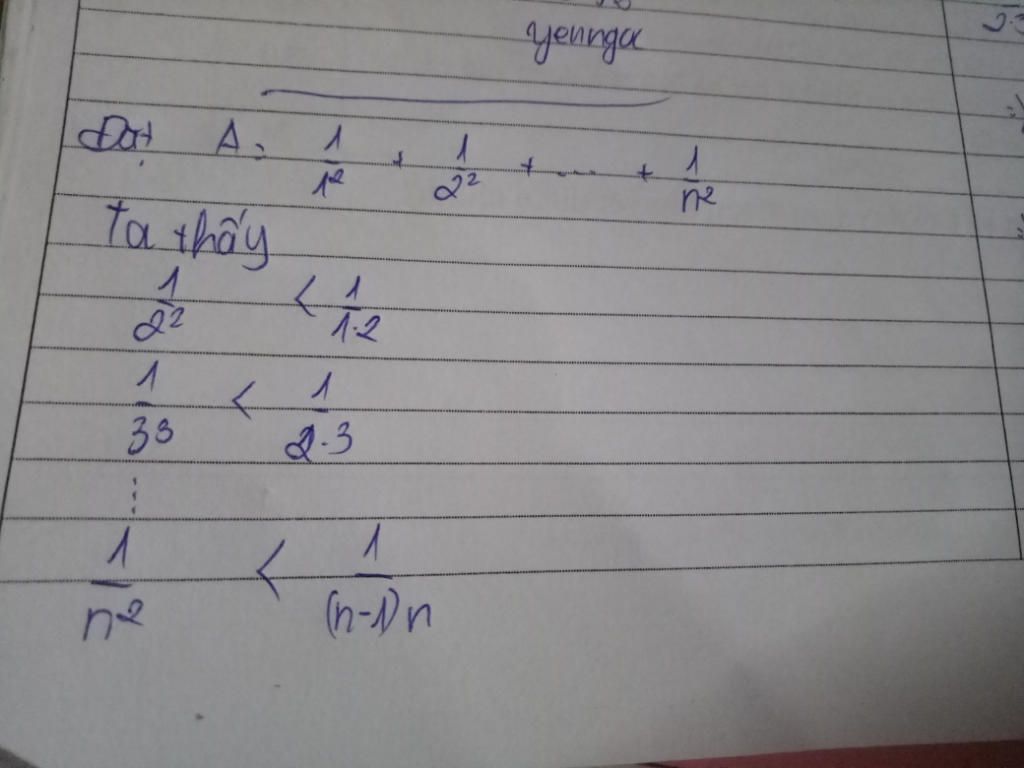 yennga
Đặt A = 1/1² + 1/2² + .... + 1/n²
Ta thấy
1/2² < 1/1·2
1/3³ < 1/2·3
⋮
1/n² < 1/(n-1)n